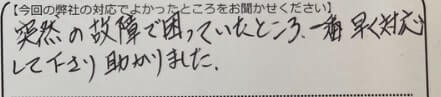 【今回の弊社の対応でよかったところをお聞かせください】
突然の故障で困っていたところ、一番早く対応
して下さり助かりました。